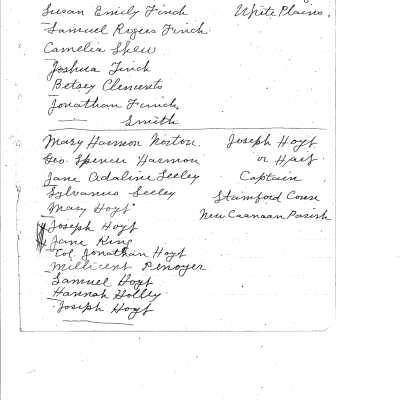 Susan Emily Finch White Plains.
Samuel Rogers Finch
Camelia Skew
Joshua Finch
Betsey Clements
Jonathan Finch
—— Smith
Mary Harmon Norton Joseph Hoyt
Geo. Spencer Harmon or Hait
Jane Adaline Seeley Captain
Sylvanus Seeley Stamford Conn
Mary Hoyt New Caanaan Parish
Joseph Hoyt
Jane King
Col. Jonathan Hoyt
Millicent Penoyer
Samuel Hoyt
Hannah Holley
Joseph Hoyt